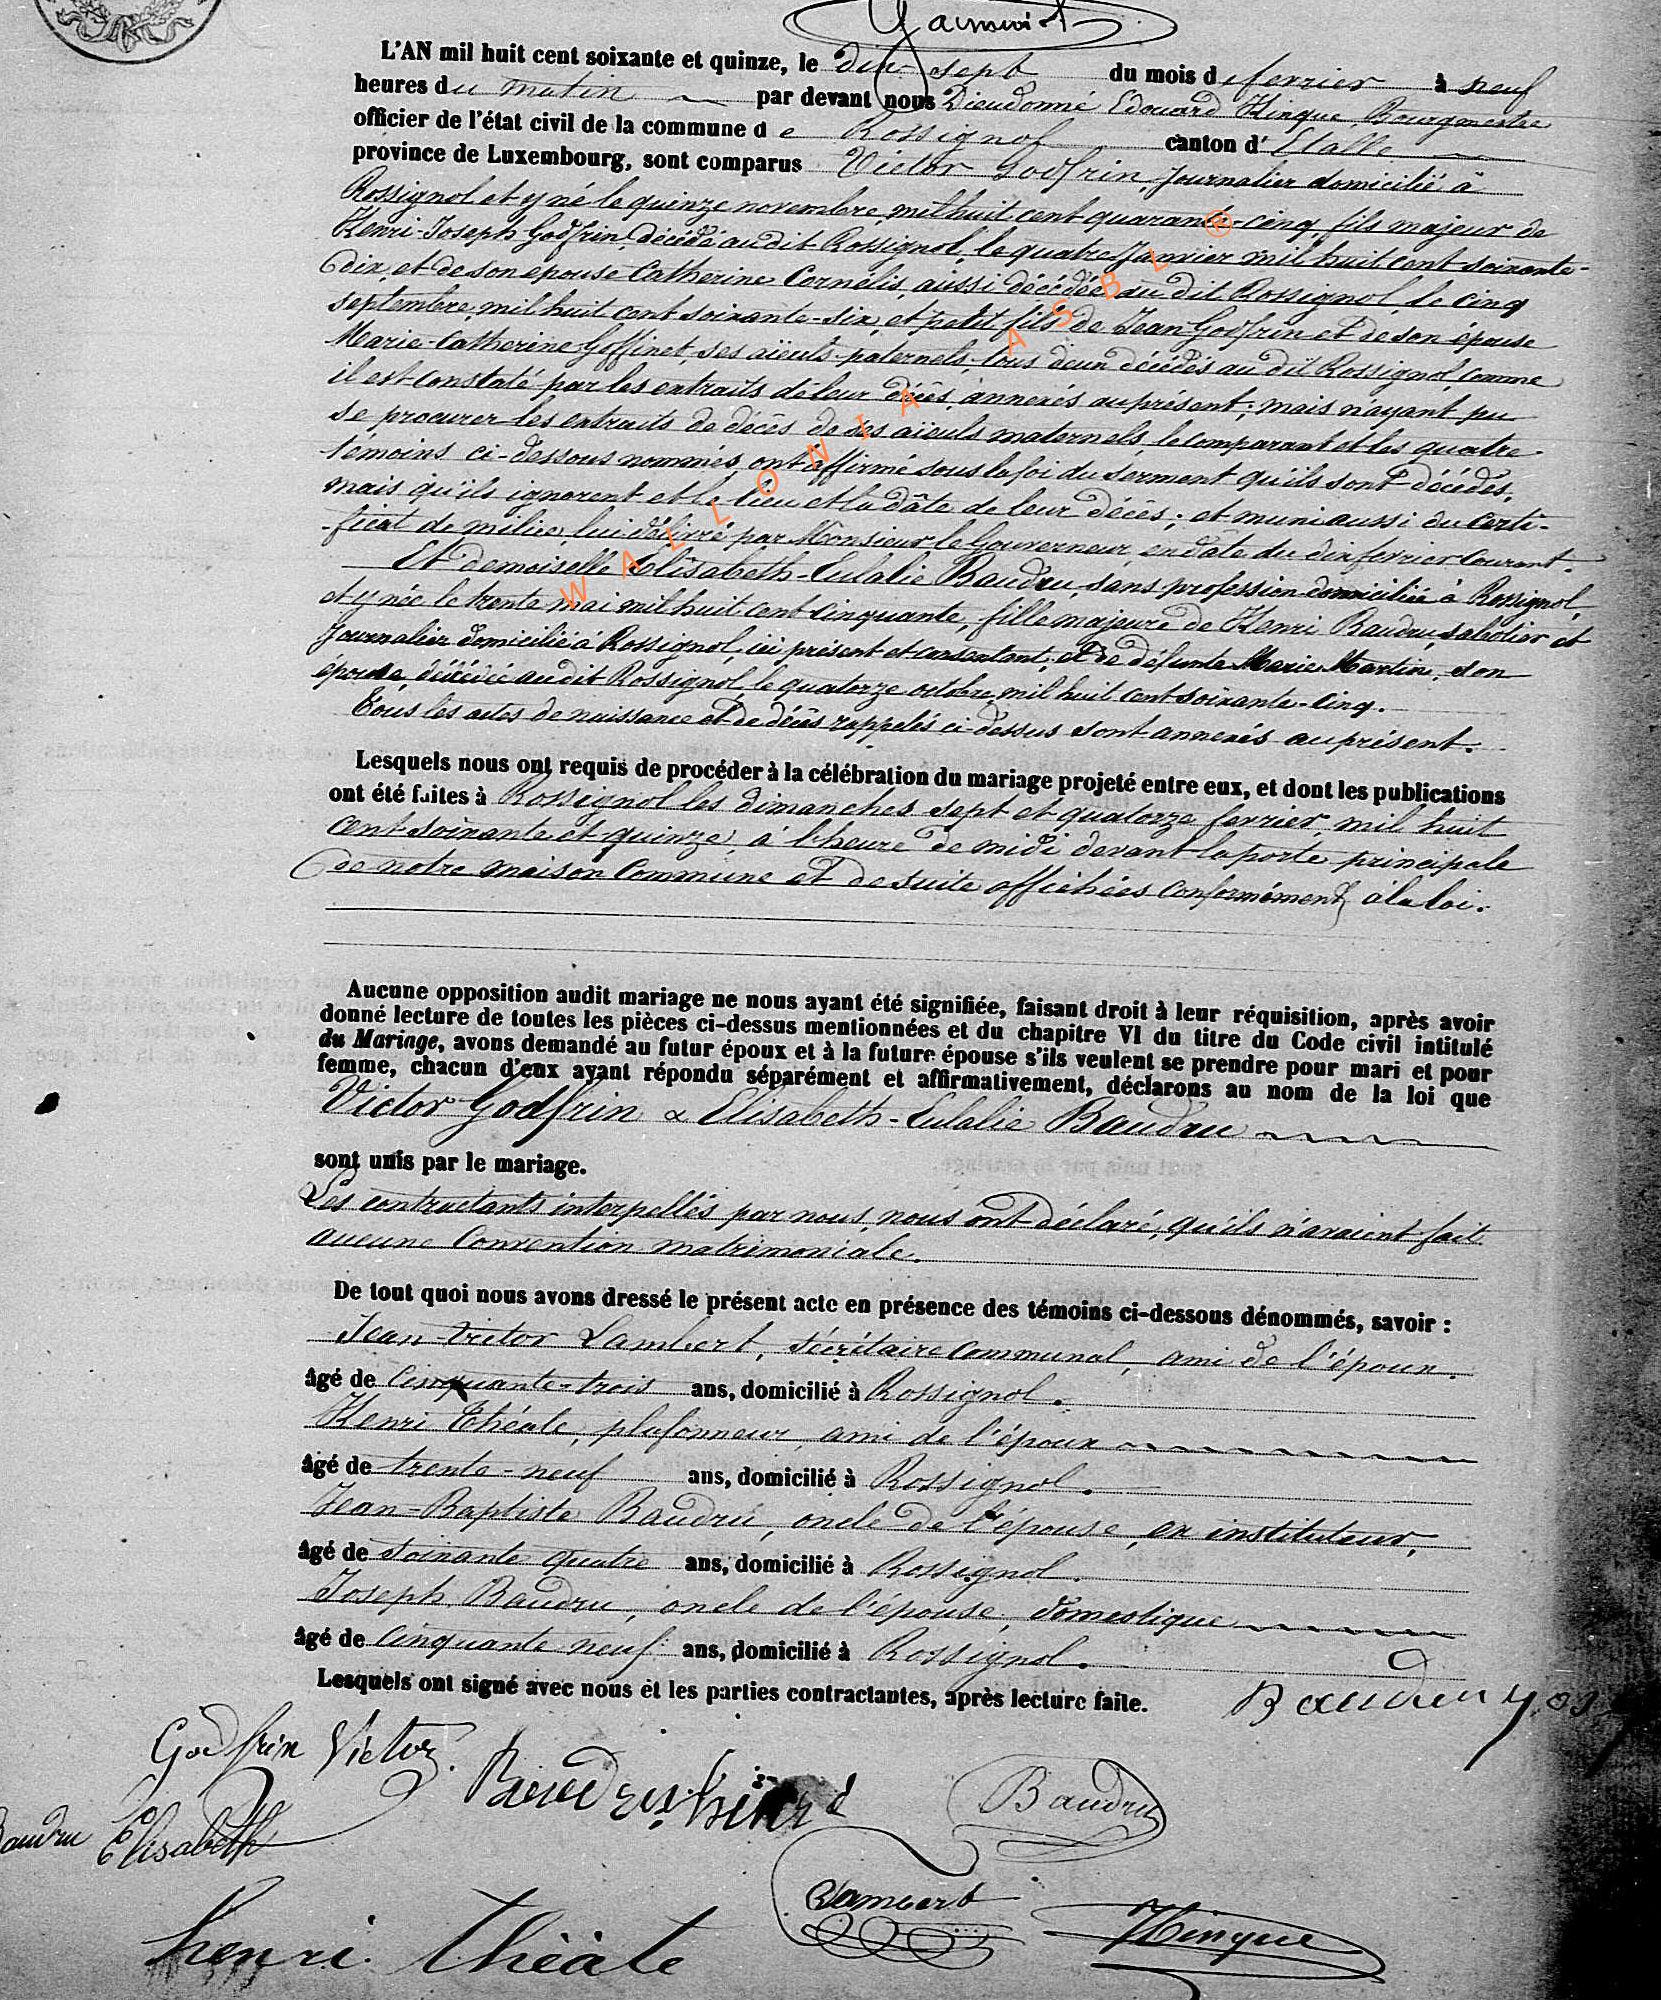 L'AN mil huit cent soixante et quinze, le dix-sept du mois de fevrier à neuf
heures du matin par devant nous Dieudonné Edouard Hinque, Bourgmestre
officier de l'état civil de la commune de Rossignol canton d'Etalle
province de Luxembourg, sont comparus Victor Godfrin, Journalier domicilié à
Rossignol et y né le quinze novembre, mil huit cent quarante-cinq, fils majeur de
Henri-Joseph Godfrin, décédé au dit Rossignol, le quatre Janvier mil huit cent soixante-
dix, et de son epouse Catherine Cornélis, aussi décédée au dit Rossignol, le cinq
septembre, mil huit cent soixante-six, et petit fils de Jean Godfrin et de son épouse
Marie-Catherine Goffinet, ses aïeuls paternels, tous deux décédés au dit Rossignol, comme
il est constaté par les extraits de leur décès, annexés au présent; mais n'ayant pu
se procurer les extraits de décès de ses aïeuls maternels, le comparant et les quatre
témoins ci-dessous nommés, ont affirmé sous la foi du serment qu'ils sont décédés,
mais qu'ils ignorent et le lieu et la dâte de leur décès; et muni aussi du certi-
-ficat de milice, lui délivré par Monsieur le Gouverneur, en date du dix fevrier courant.
Et demoiselle Elisabeth-Eulalie Baudru, sans profession domiciliée à Rossignol,
et y née le trente mai mil huit cent cinquante, fille majeure de Henri Baudru, sabotier et
Journalier domicilié à Rossignol, ici présent et consentant, et de défunte Marie Martin, son
épouse, décédée au dit Rossignol, le quatorze octobre, mil huit cent soixante-cinq.
Tous les actes de naissance et de décès rappelés ci-dessus sont annexés au présent.
Lesquels nous ont requis de procéder à la célébration du mariage projeté entre eux, et dont les publications
ont été faites à Rossignol les dimanches sept et quatorze fevrier, mil huit
cent soixante et quinze, à l'heure de midi devant la porte principale
de notre maison Commune et de suite affichées conformément à la loi.
Aucune opposition audit mariage ne nous ayant été signifiée, faisant droit à leur réquisition, après avoir
donné lecture de toutes les pièces ci-dessus mentionnées et du chapitre VI du titre du Code civil intitulé
du Mariage, avons demandé au futur époux et à la future épouse s'ils veulent se prendre pour mari et pour
femme, chacun d'eux ayant répondu séparément et affirmativement, déclarons au nom de la loi que
Victor Godfrin & Elisabeth-Eulalie Baudru
sont unis par le mariage.
Les contractants interpellés par nous, nous ont déclaré, qu'ils n'avaient fait
aucune Convention matrimoniale.
De tout quoi nous avons dressé le présent acte en présence des témoins ci-dessous dénommés, savoir :
Jean Victor Lambert, sécrétaire Communal, ami de l'époux.
âgé de Cinquante-trois ans, domicilié à Rossignol.
Henri Théate, plafonneur, ami de l'époux
âgé de trente-neuf ans, domicilié à Rossignol.
Jean-Baptiste Baudru, oncle de l'épouse, ex instituteur,
âgé de Soixante quatre ans, domicilié à Rossignol.
Joseph Baudru, oncle de l'épouse, domestique
âgé de Cinquante neuf ans, domicilié à Rossignol.
Lesquels ont signé avec nous et les parties contractantes, après lecture faite.
Baudru
Godfrin Victor.
Baudru
Baudru Elisabeth
Lambert
Hinque
henri théate
WALLONIA ASBL ®